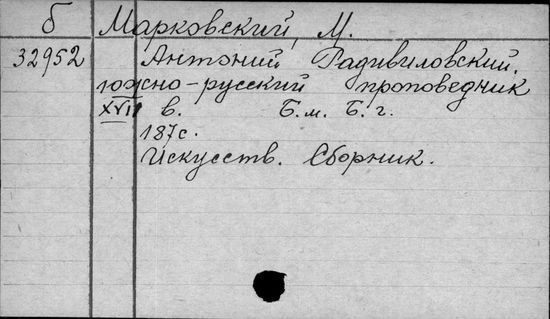 б Марковский, М.
32952 Антоний Радивиловский,
южно-русский проповедник
XVII в. Б.м. Б.г.
187с.
Искусств. Сборник.